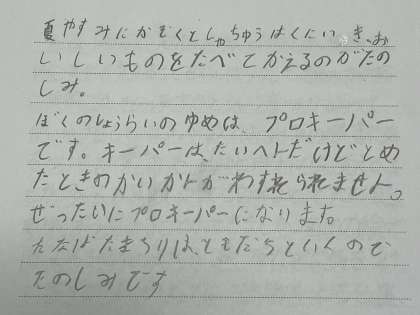 夏やすみにかぞくとしゃちゅうはくにいき、お
いしいものをたべてかえるのがたの
しみ。
ぼくのしょうらいのゆめは、プロキーパー
です。キーパーは、たいへトだけどとめ
たときのかいかトがわすれられませト。
ぜったいにプロキーパーになります。
たなばたまつりは、ともだちといくので
たのしみです